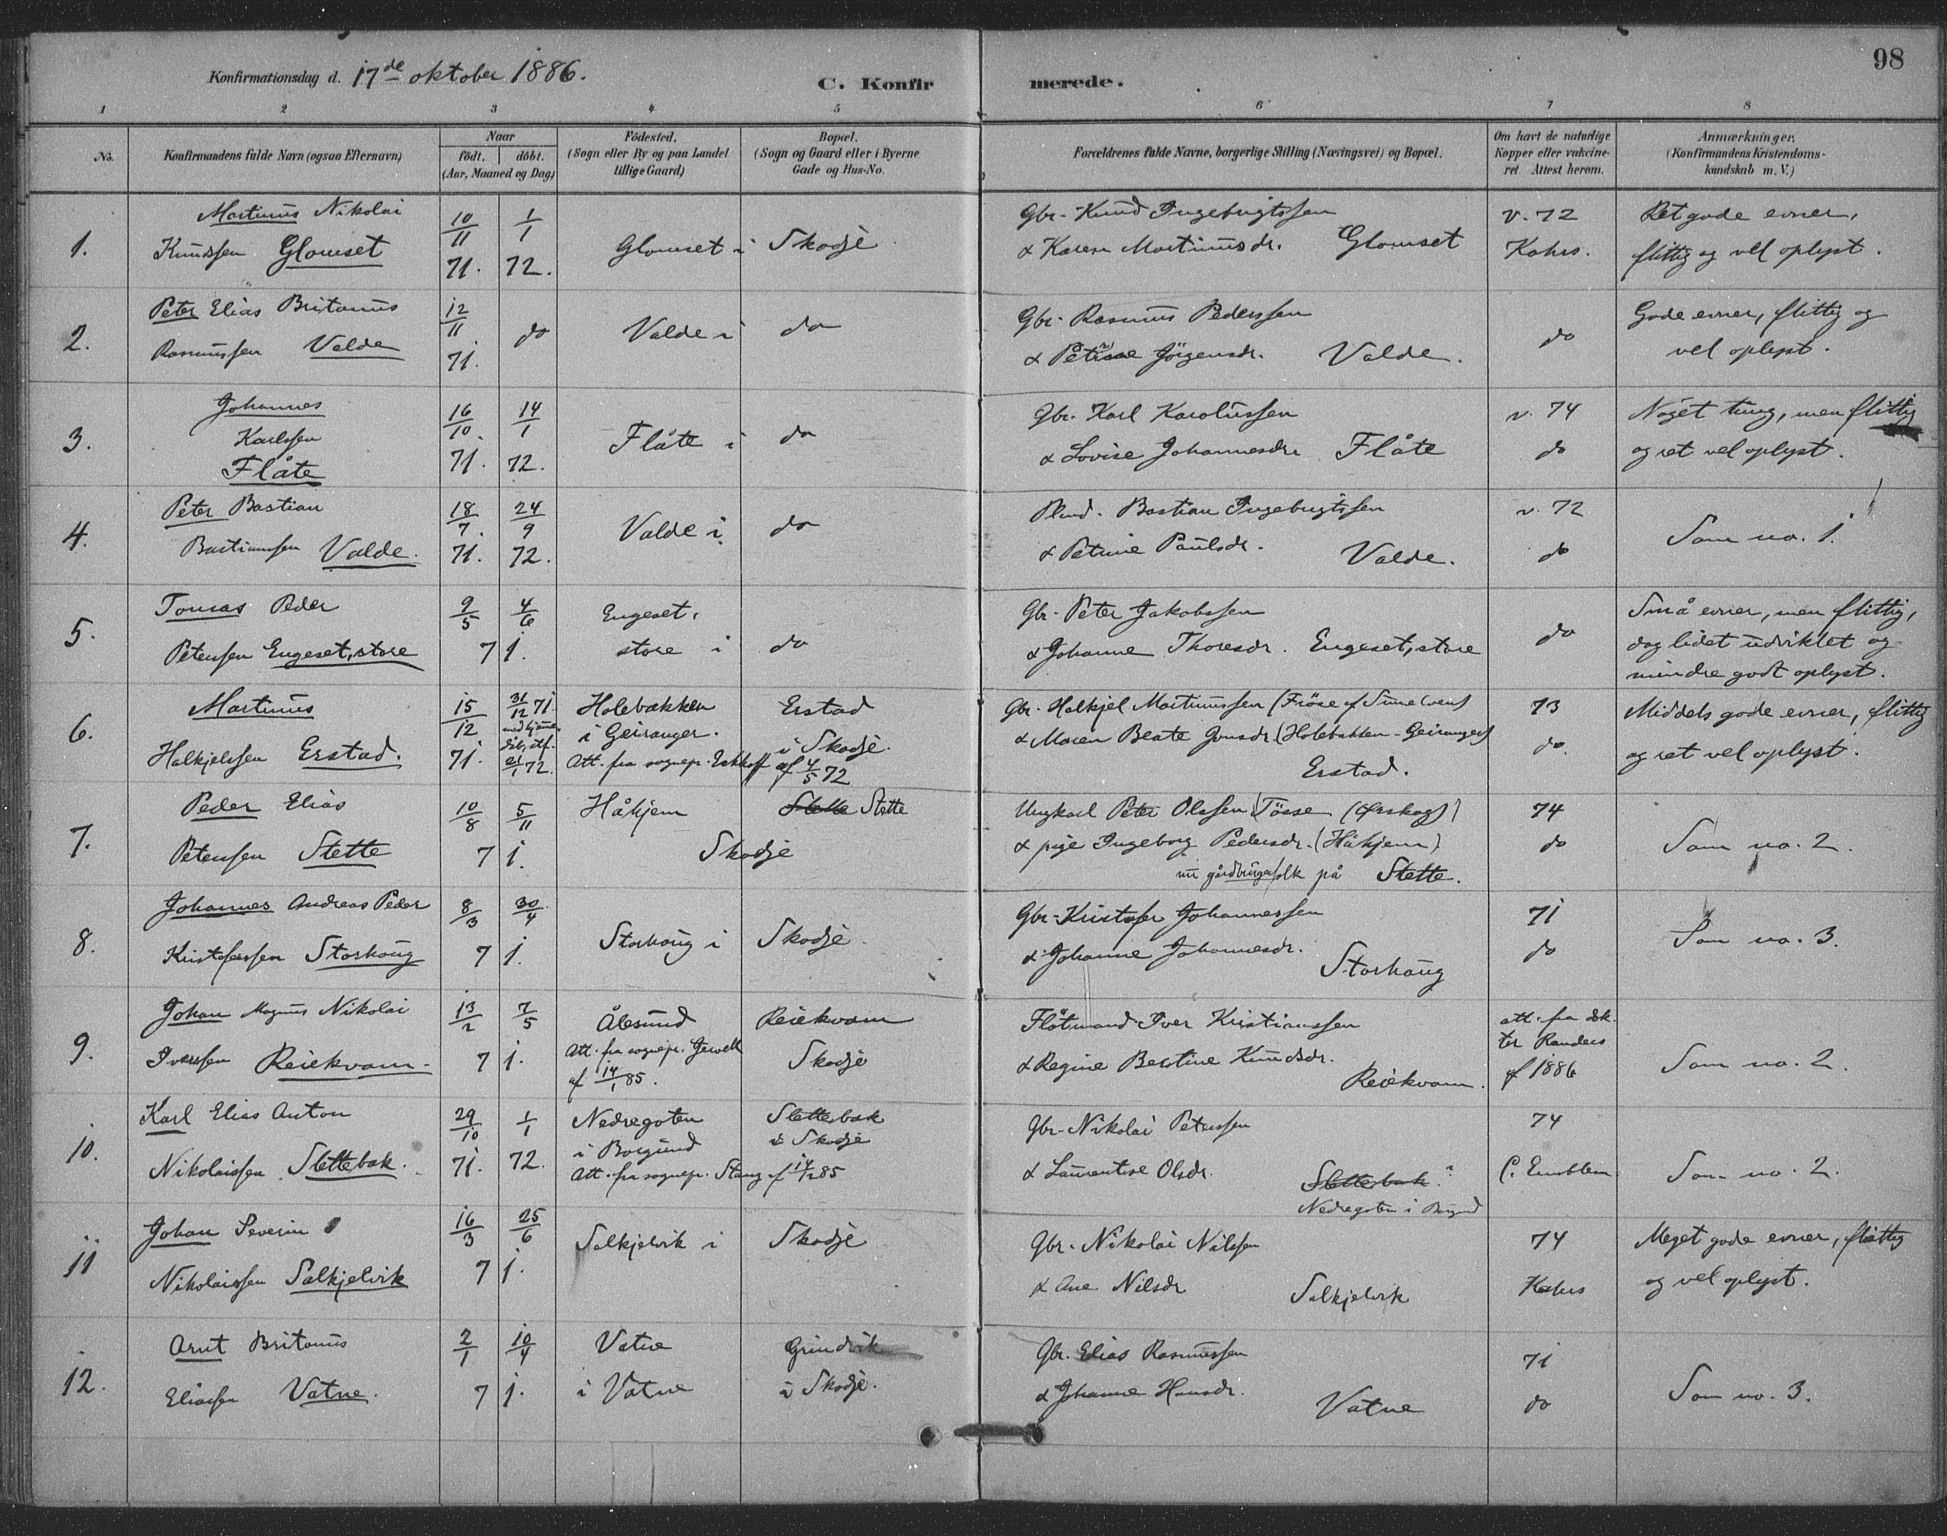 98
Konfirmationsdag d. 17de oktober 1886.
C. Konfirmerede.
1 2 3 4 5 6 7 8
No.
Konfirmandens fulde Navn (ogsaa Efternavn)
Naar
födt. döbt.
(Aar, Maaned og Dag)
Födested.
(Sogn eller By og paa Landet
tillige Gaard)
Bopæl.
(Sogn og Gaard eller i Byerne
Gade og Hus-No.
Forældrenes fulde Navne, borgerlige Stilling (Næringsvei) og Bopæl.
Om havt de naturlige
Kopper eller vakcine-
ret Attest herom.
Anmærkninger.
(Konfirmandens Kristendoms-
kundskab m. V.)
1. Martinus Nikolai
Knudssen Glomset
10/11 71. 1/1 72.
Glomset i Skodje
Gbr. Knud Ingebrigtssen
& Karen Martinusdr. Glomset
v. 72
Kahrs.
Ret gode evner,
flittig og vel oplyst.
2. Peter Elias Britanus
Rasmussen Valde
12/11 71. do
Valde i do
Gbr. Rasmus Pederssen
& Petrine Jörgensdr. Valde.
do
Gode evner, flittig og
vel oplyst.
3. Johannes
Karlssen
Flåte
16/10 71. 14/1 72.
Flåte i do
Gbr. Karl Karolussen
& Lovise Johannesdr. Flåte
v. 74
do
Noget tung, men flittig
og ret vel oplyst.
4. Peter Bastian
Bastianssen Valde.
18/7 71. 24/9 72.
Valde i do
Plmd. Bastian Ingebrigtssen
& Petrine Paulsdr. Valde.
v. 72
do
Som no. 1.
5. Tomas Peder
Peterssen Engeset, store
9/5 4/6 71.
Engeset,
store i do
Gbr. Peter Jakobssen
& Johanne Thoresdr. Engeset, store
do
Små evner, men flittig,
dog lidet udviklet og
mindre godt oplyst.
6. Martinus
Halkjelssen Erstad.
15/12 71. 31/12 71
21/1 72.
Holebakken
i Geiranger.
Att. fra sognepr. Eckhoff af 4/5 72
Erstad
i Skodje.
Gbr. Halkjel Martinussen
& Maren Beate Jonsdr. (Holebakken - Geiranger)
Erstad.
73
do.
Middels gode evner, flittig
og ret vel oplyst.
7. Peder Elias
Peterssen Stette
10/8 5/11 71.
Håhjem Stette
Skodje
Ungkarl Peter Olssen Tösse (Ørskog)
& pige Ingeborg Pedersdr. (Håhjem)
nu gårdbrugerfolk på Stette.
74
do
Som no. 2.
8. Johannes Andreas Peder
Kristofersen Storhoug
8/3 30/4 71.
Storhoug i Skodje.
Gbr. Kristofer Johannessen
& Johanne Johannesdr. Storhoug
71
do
Som no. 3.
9. Johan Magnus Nikolai
Iverssen Reiekvam.
13/2 7/5 71.
Ålesund
Att. fra sognepr. Jervell
af 14/1 85.
Reiekvam
Skodje
Flåtmand Iver Kristianssen
& Regine Bertine Knudsdr.
Reiekvam.
att. fra dok-
ter Randers
af 1886
Som no. 2.
10. Karl Elias Anton
Nikolaissen Slettebak.
29/10 71. 1/1 72.
Nedregoten
i Borgund
Att. fra sognepr. Stang af 14/12 85
Slettebak
i Skodje
Gbr. Nikolai Peterssen
& Laurentse Olsdr. Slettebak
Nedregoten i Borgund
74
C. Emblem
Som no. 2.
11 Johan Severin
Nikolaissen Solkjelvik
16/3 25/6 71.
Solkjelvik i Skodje
Gbr. Nikolai Nilssen
& Ane Nilsdr Solkjelvik
74
Kahrs
Meget gode evner, flittig
og vel oplyst.
12. Arnt Britanus
Eliassen Vatne.
2/1 10/4 71.
Vatne
i Vatne
Grindvik
i Skodje.
Gbr. Elias Rasmussen
& Johanne Hansdr. Vatne
71
do
Som no. 3.